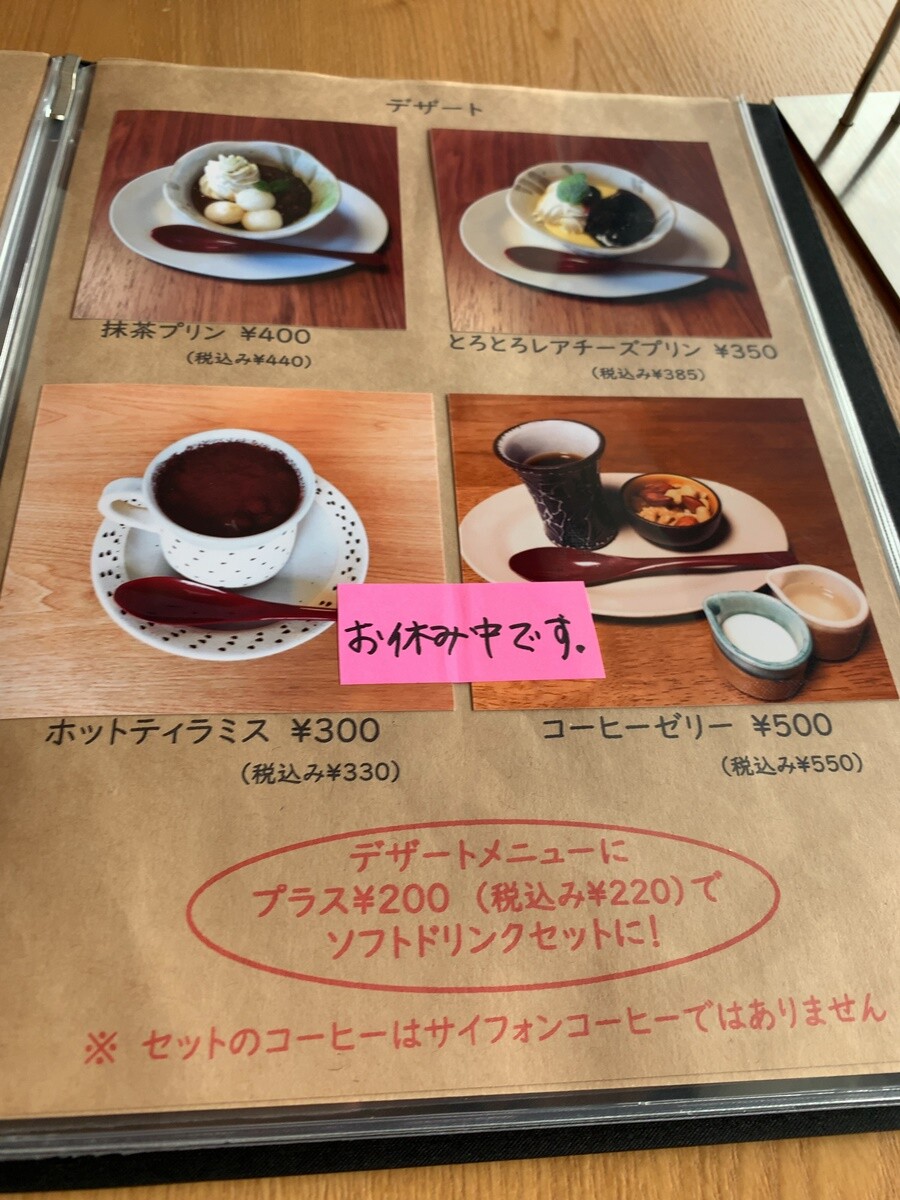 デザート
抹茶プリン ¥400
(税込み¥440)
とろとろレアチーズプリン ¥350
(税込み¥385)
お休み中です。
ホットティラミス ¥300
(税込み¥330)
コーヒーゼリー ¥500
(税込み¥550)
デザートメニューに
プラス¥200 (税込み¥220)で
ソフトドリンクセットに!
※ セットのコーヒーはサイフォンコーヒーではありません